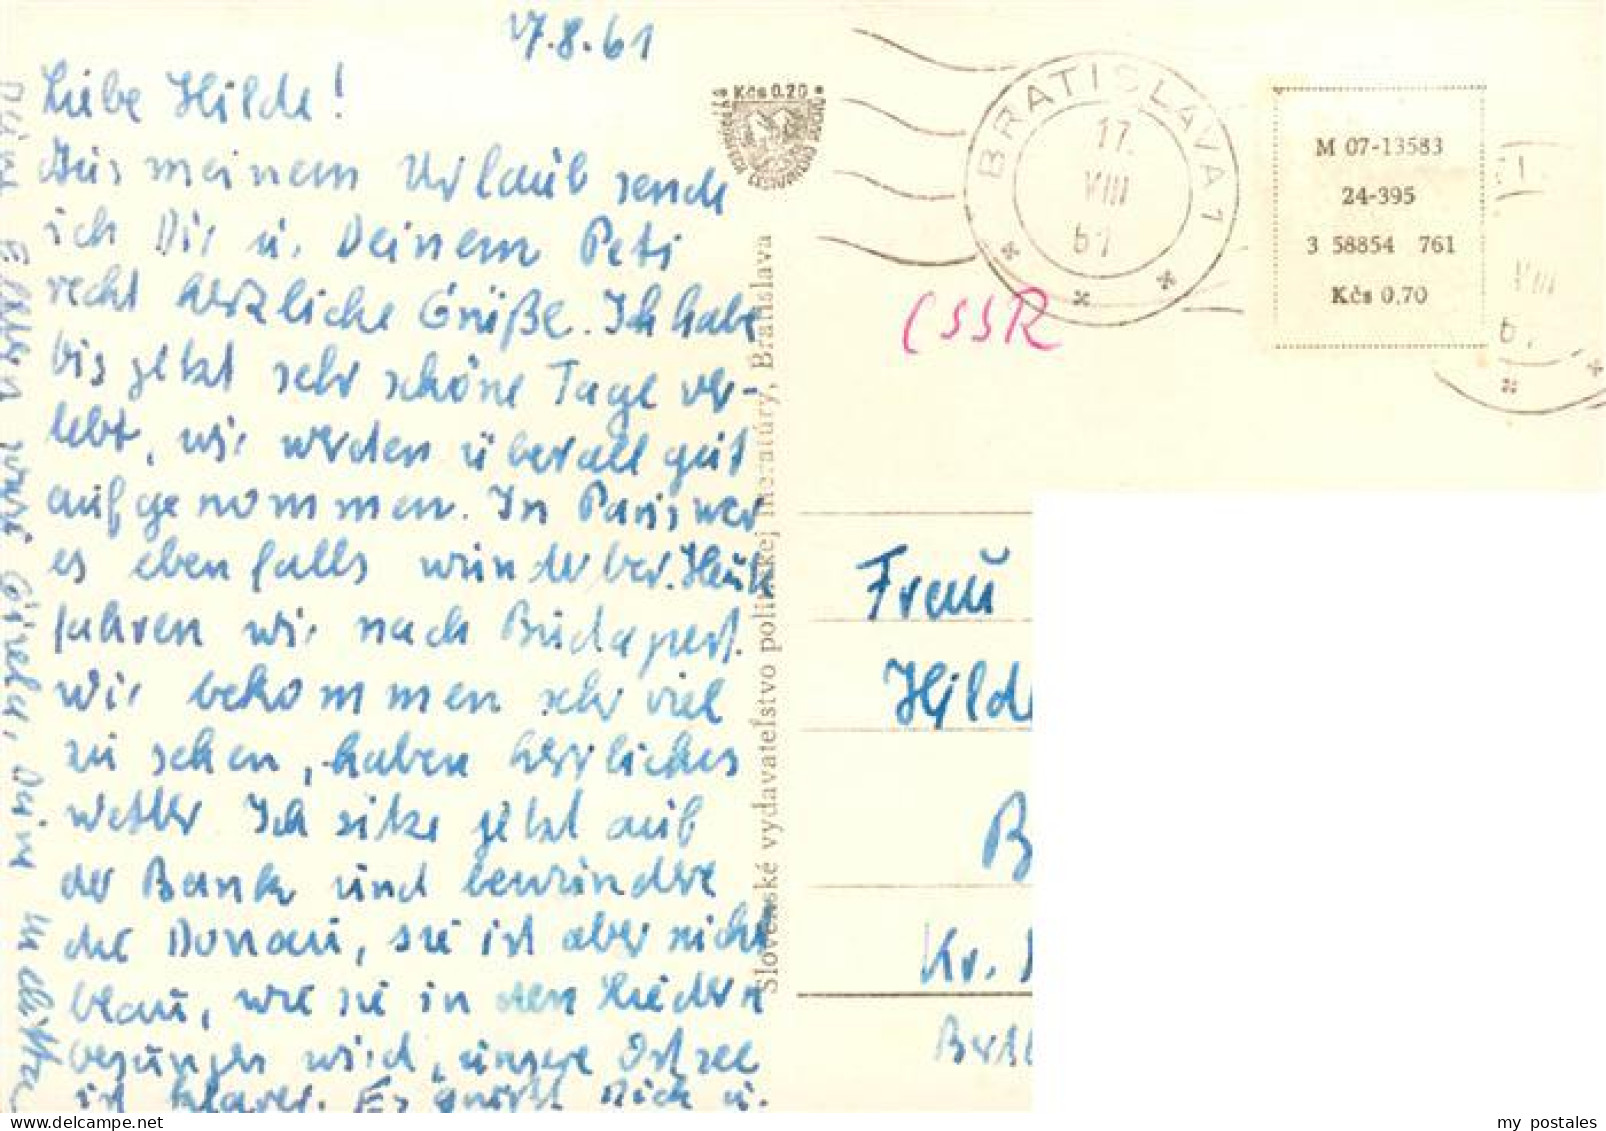 17.8.61
Liebe Hilde!
Aus meinem Urlaub sende
ich Dir u. Deinem Peti
recht herzliche Grüße. Ich habe
bis jetzt sehr schöne Tage ver-
lebt, wir werden überall gut
aufgenommen. In Paris war
es ebenfalls wunderbar. Heute
fahren wir nach Budapest.
Wir bekommen sehr viel
zu sehen, haben herrliches
Wetter. Ich sitze jetzt auf
der Bank und bewundere
die Donau, sie ist aber nicht
blau, wie sie in den Liedern
besungen wird, unsere Ostsee
ist klarer. Es grüßt Dich u.
Deine Eltern
Kčs 0.20
Slovenské vydavateľstvo politickej literatúry, Bratislava
BRATISLAVA 1
17.
VIII
61
M 07-13583
24-395
3 58854 761
Kčs 0.70
VIII
CSSR
Frau
Hilde
B
Kr.
my postales